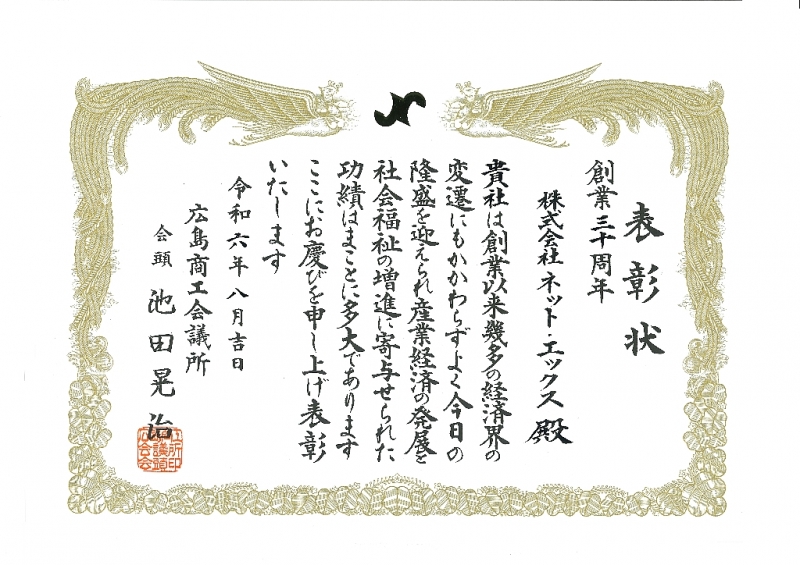 表彰状
創業三十周年
株式会社 ネット・エックス 殿
貴社は創業以来幾多の経済界の
変遷にもかかわらずよく今日の
隆盛を迎えられ産業経済の発展と
社会福祉の増進に寄与せられた
功績はまことに多大であります
ここにお慶びを申し上げ表彰
いたします
令和六年八月吉日
広島商工会議所
会頭 池田晃治